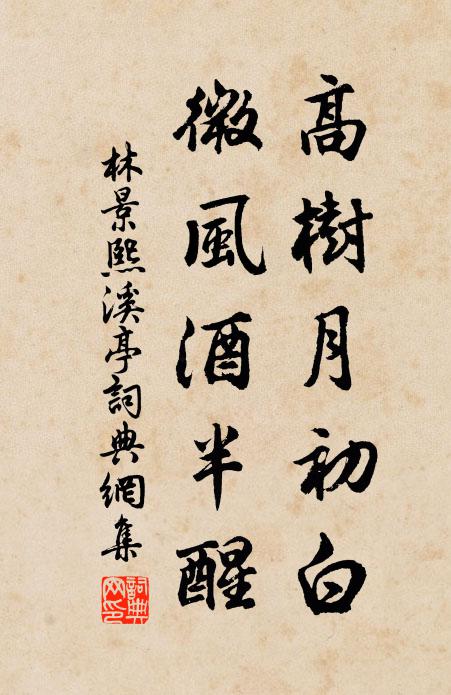 高樹月初白
微風酒半醒
林景熙溪亭詞典網集
詞典網印